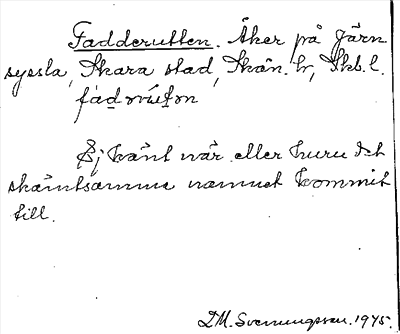 Fadderutten. Åker på Järn
syssla, Skara stad, Skån. hr, Skb. l.
Ej känt när eller huru det
skämtsamma namnet kommit
till.
D.M. Svenungsson. 1975.